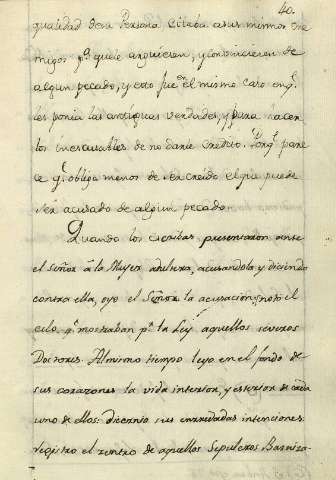 40.
qualidad de su Persona citaba a sus mismos ene
migos pª que le arguieran, y convencieran de
algun pecado, y esto fue en el mismo caso en q.
les ponia las antiguas verdades, y para hacer
los inexcusables de no darle credito. Porq. pare
ce q. obliga menos de ser creido el q. no puede
ser acusado de algun pecado.
Quando los escribas presentaron ante
el Señor â la Muger adultera, acusandola y diciendo
contra ella, oyo el Señor la acusacion, noto el
celo q. mostraban pr. la Ley aquellos severos
Doctores. Al mismo tiempo leyo en el fondo de
sus corazones la vida interior, y exterior de cada
uno de ellos: discernio sus enredadas intenciones:
registro el centro de aquellos Sepulcros Barniza-